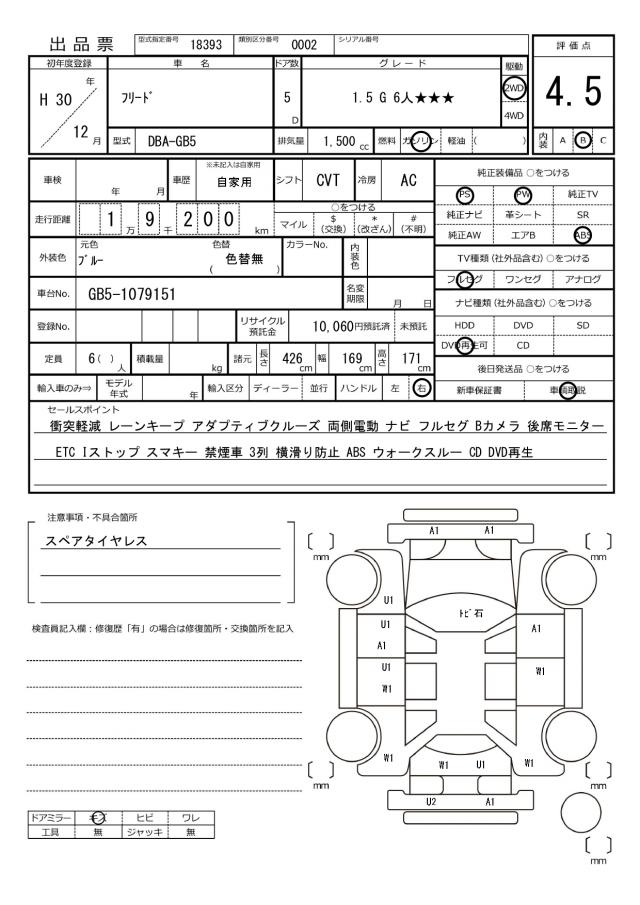 出品票
型式指定番号 18393 類別区分番号 0002 シリアル番号
評価点
4.5
内装 A B C
初年度登録 車名 ドア数 グレード 駆動
H 30 年 12 月
ﾌﾘｰﾄﾞ
5 D
1.5 G 6人★★★
2WD
4WD
型式 DBA-GB5 排気量 1,500 cc 燃料 ガソリン 軽油 ( )
車検 年 月 車歴 ※未記入は自家用 自家用 シフト CVT 冷房 AC
純正装備品 ○をつける
PS PW 純正TV
純正ナビ 革シート SR
純正AW エアB ABS
走行距離 1 万 9 千 2 0 0 km
○をつける
マイル $ (交換) * (改ざん) # (不明)
外装色 元色 ﾌﾞﾙｰ 色替 ( 色替無 ) カラーNo. 内装色
TV種類 (社外品含む) ○をつける
フルセグ ワンセグ アナログ
車台No. GB5-1079151 名変期限 月 日
ナビ種類 (社外品含む) ○をつける
HDD DVD SD
DVD再生可 CD
登録No. リサイクル預託金 10,060円預託済 未預託
定員 6( ) 人 積載量 kg 諸元 長さ 426 cm 幅 169 cm 高さ 171 cm
後日発送品 ○をつける
新車保証書 車輌取説
輸入車のみ⇒ モデル年式 年 輸入区分 ディーラー 並行 ハンドル 左 右
セールスポイント
衝突軽減 レーンキープ アダプティブクルーズ 両側電動 ナビ フルセグ Bカメラ 後席モニター
ETC Iストップ スマキー 禁煙車 3列 横滑り防止 ABS ウォークスルー CD DVD再生
注意事項・不具合箇所
スペアタイヤレス
検査員記入欄：修復歴「有」の場合は修復箇所・交換箇所を記入
A1 A1
mm mm
U1
ﾄﾋﾞ石
U1 A1
A1
U1 W1
W1
W1 W1 U1 W1
mm mm
U2 A1
mm
ドアミラー キズ ヒビ ワレ
工具 無 ジャッキ 無